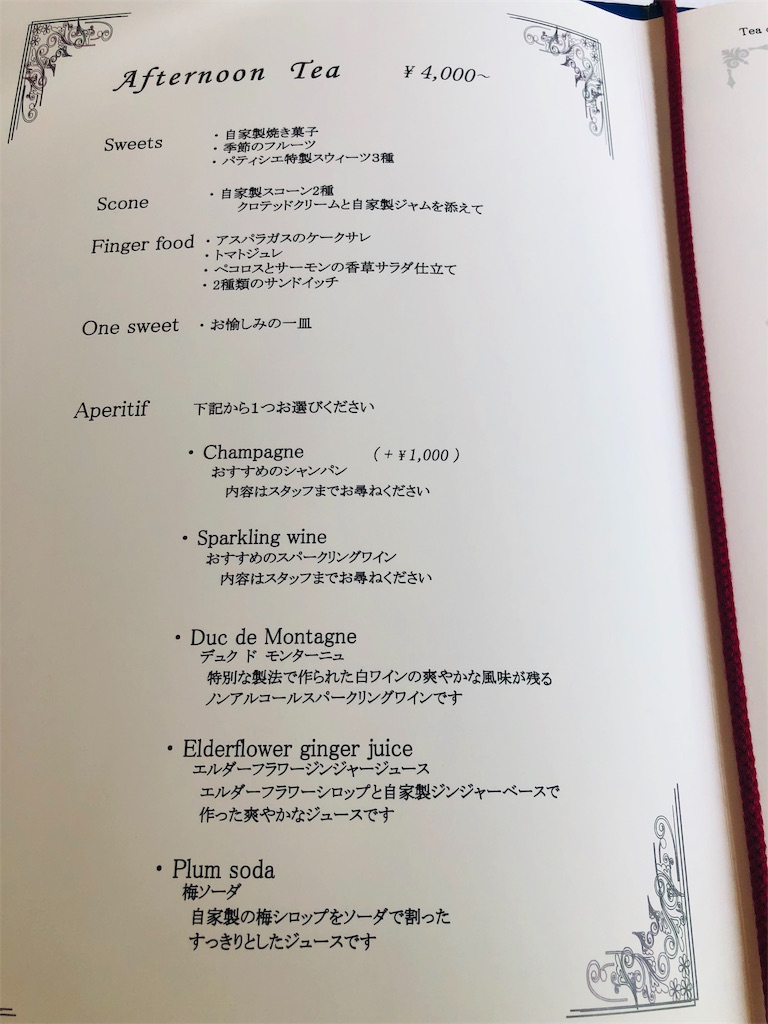 Afternoon Tea ¥ 4,000~
Sweets ・自家製焼き菓子
・季節のフルーツ
・パティシエ特製スウィーツ3種
Scone ・自家製スコーン2種
クロテッドクリームと自家製ジャムを添えて
Finger food ・アスパラガスのケークサレ
・トマトジュレ
・ペコロスとサーモンの香草サラダ仕立て
・2種類のサンドイッチ
One sweet ・お愉しみの一皿
Aperitif 下記から1つお選びください
・Champagne (+¥1,000)
おすすめのシャンパン
内容はスタッフまでお尋ねください
・Sparkling wine
おすすめのスパークリングワイン
内容はスタッフまでお尋ねください
・Duc de Montagne
デュク ド モンターニュ
特別な製法で作られた白ワインの爽やかな風味が残る
ノンアルコールスパークリングワインです
・Elderflower ginger juice
エルダーフラワージンジャージュース
エルダーフラワーシロップと自家製ジンジャーベースで
作った爽やかなジュースです
・Plum soda
梅ソーダ
自家製の梅シロップをソーダで割った
すっきりとしたジュースです
Tea